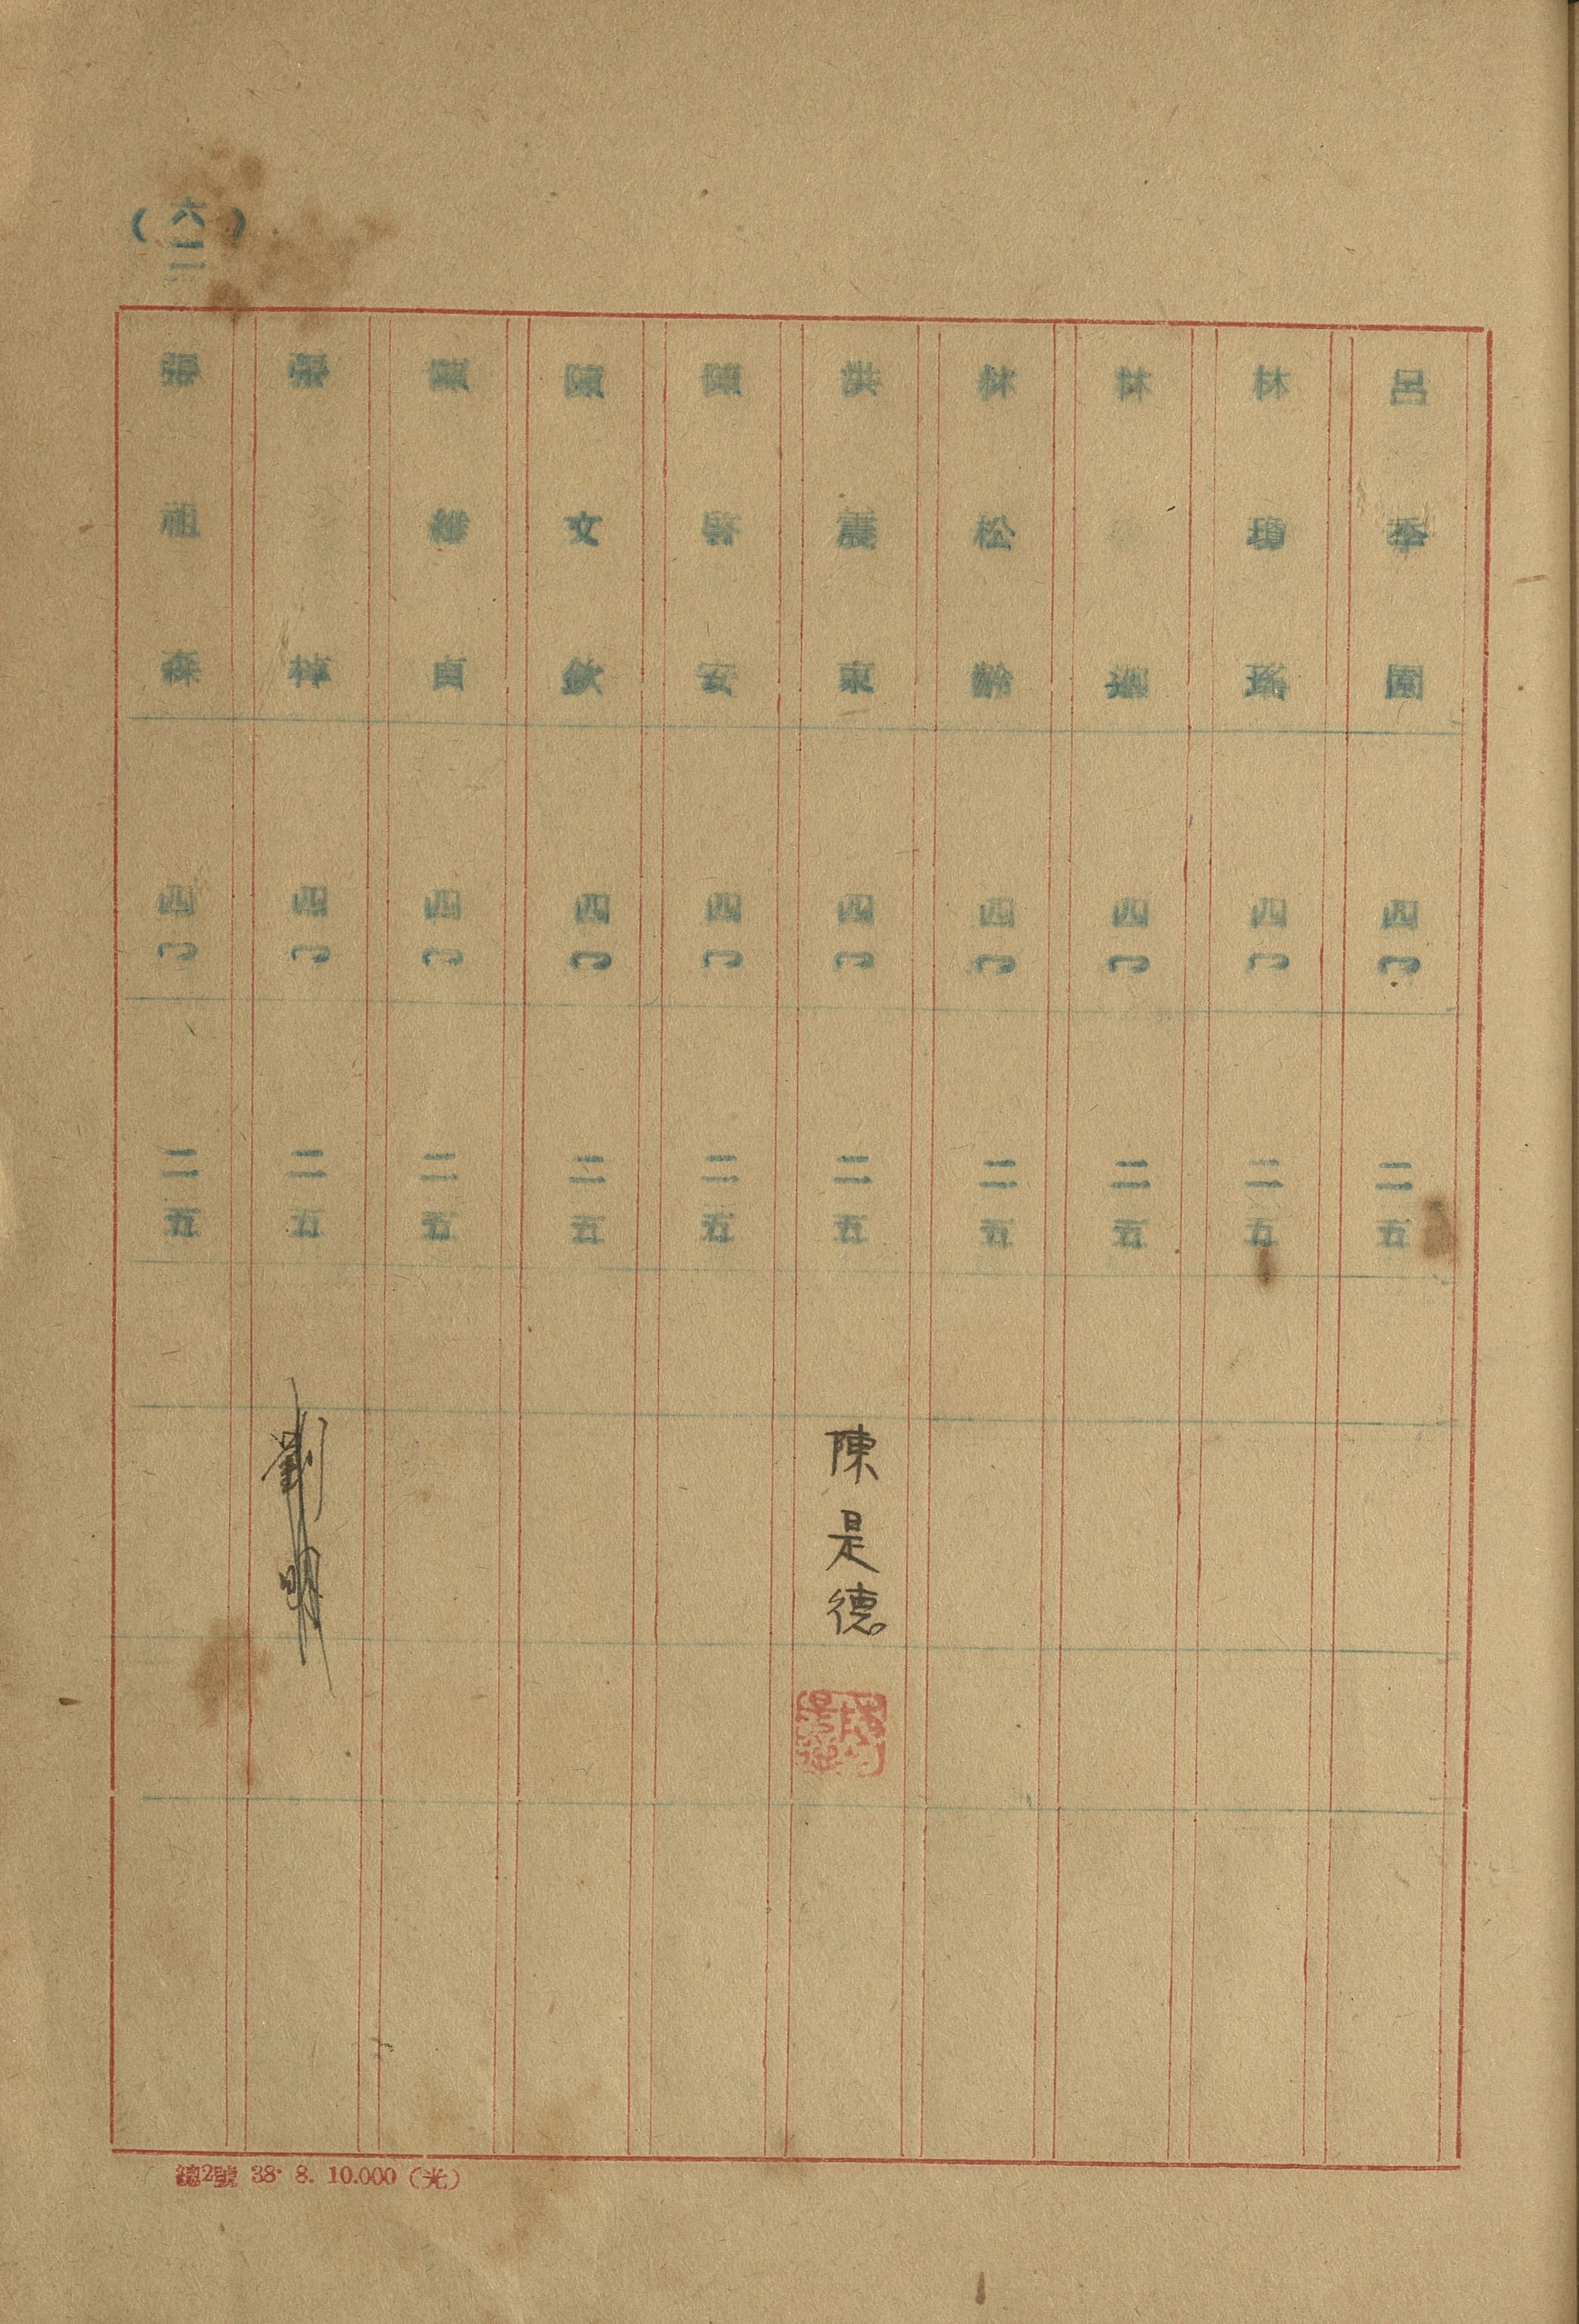 (六二)
呂季園 四丁 二五
林瓊瑤 四丁 二五
林 四丁 二五
林松齡 四丁 二五
洪震東 四丁 二五 陳是德
陳啓安 四丁 二五
陳文欽 四丁 二五
陳維貞 四丁 二五
張梓 四丁 二五 劉明
張祖森 四丁 二五
總2號 38. 8. 10.000 (光)